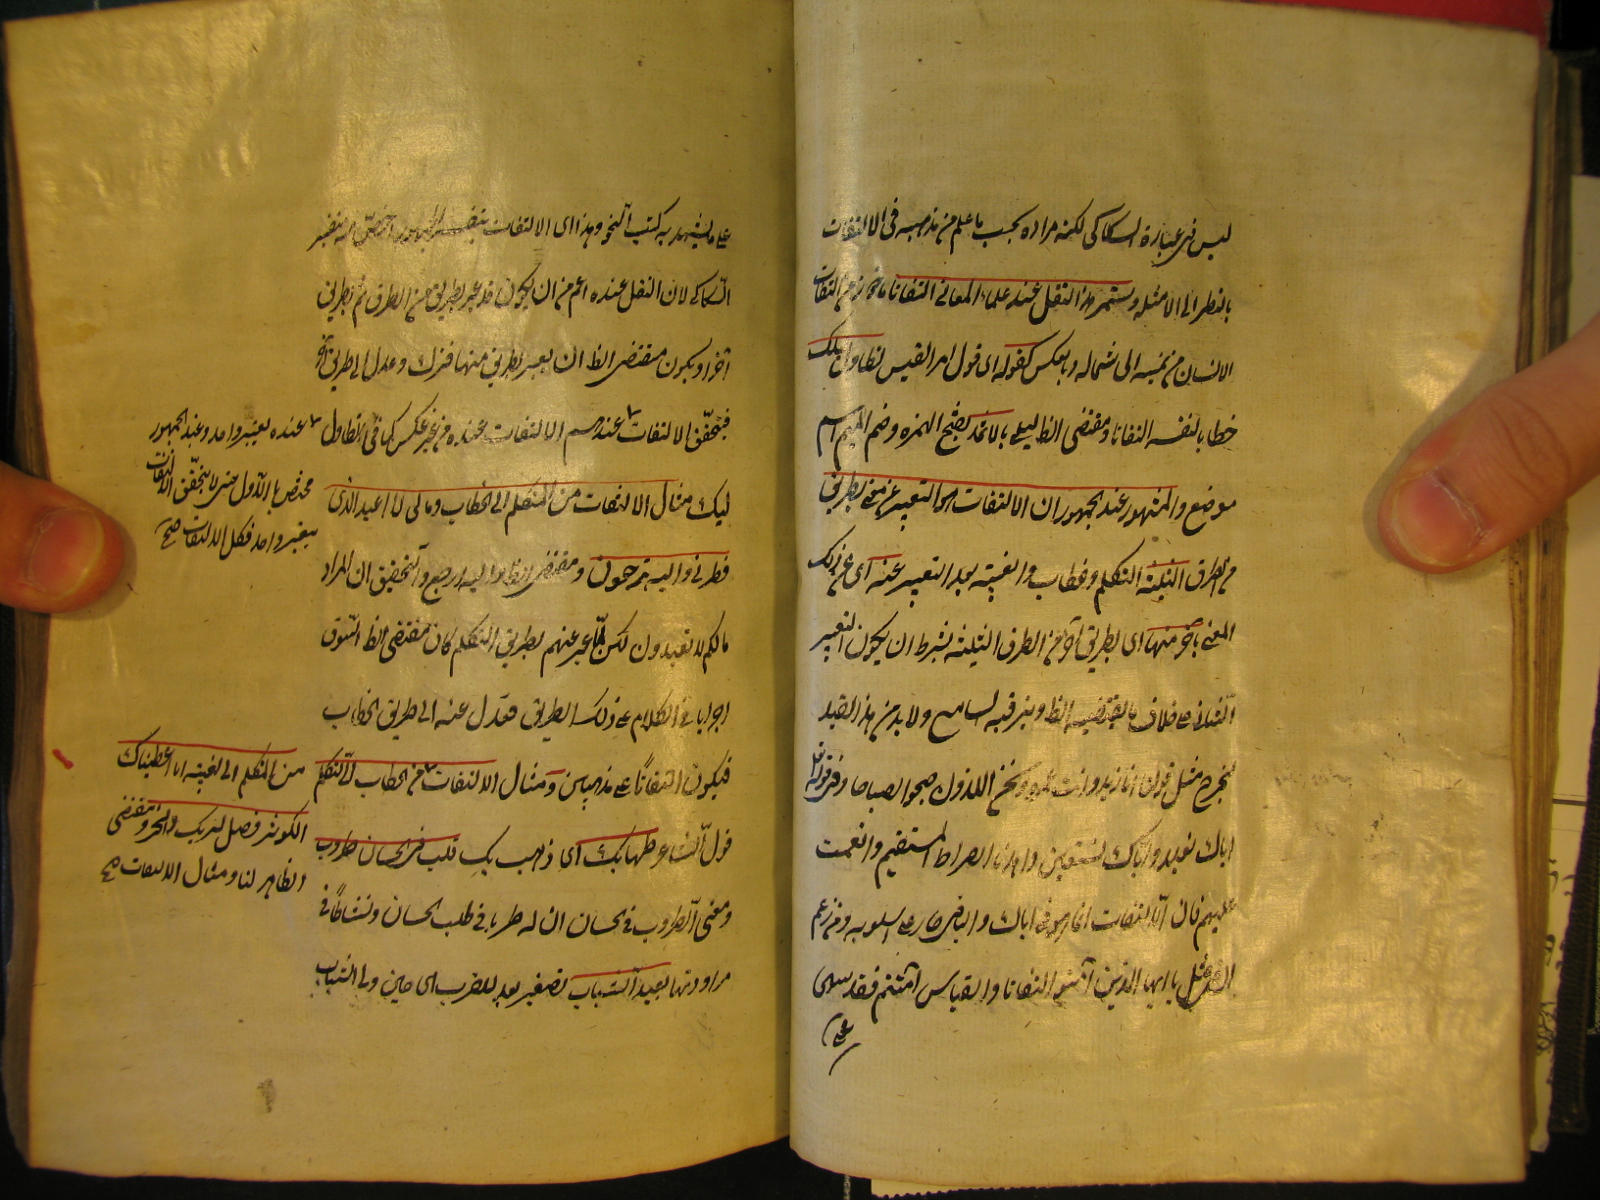 ليس في عبارة السكاكي لكنه مراده بحسب ما علم من مذهبه في الالتفات
بالنظر الى الامثلة ويستمر هذا النقل عند علماء المعاني التفاتا ماخوذ من التفات
الانسان من يمينه الى شماله وبالعكس كقوله اى قول امرء القيس تطاول ليلك
خطابا لنفسه التفاتا ومقتضى الظ ليلي بالاثمد بفتح الهمزه وضم الميم اسم
موضع والمشهور عند الجمهور ان الالتفات هو التعبير عن معنى بطريق
من الطرق الثلثة التكلم والخطاب والغيبة بعد التعبير عنه اى عن ذلك
المعنى بآخر منها اى بطريق آخر من الطرق الثلثة بشرط ان يكون التعبير
الثاني على خلاف ما يقتضيه الظ ويترقبه السامع ولا بد من هذا القيد
ليخرج مثل قولنا انا زيد وانت عمرو ونحن اللذون صبحوا الصباحا وقوله تعالى
اياك نعبد واياك نستعين واهدنا الصراط المستقيم وانعمت
عليهم فان الالتفات انما هو في اياك والباقي جار على اسلوبه ومن زعم
ان في مثل يا ايها الذين آمنوا التفاتا والقياس آمنتم فقد سهى
على
على ما يشهد به كتب النحو وهذا اى الالتفات بتفسير الجمهور اخص منه بتفسير
السكاكى لان النقل عنده اعم من ان يكون قد عبر بطريق من الطرق ثم بطريق
آخر او يكون مقتضى الظ ان يعبر بطريق منها فترك وعدل الى طريق آخر
فيتحقق الالتفات عندهم الالتفات عنده من غير عكس كما في تطاول
عنده بتعبير واحد وعند الجمهور
مختص بالاول حتى لا يتحقق الالتفات
بتعبير واحد فكل الالتفات صح
ليلك مثال الالتفات من المتكلم الى الخطاب ومالى لا اعبد الذى
فطرنى واليه ترجعون ومقتضى الظ واليه ارجع والتحقيق ان المراد
مالكم لا تعبدون لكن لما عبر عنهم بطريق التكلم كان مقتضى الظ السوق
اجراء باقى الكلام على ذلك الطريق فعدل عنه الى طريق الخطاب
فيكون التفاتا على مذهبين ومثال الالتفات من الخطاب الى التكلم
من التكلم الى الغيبة انا اعطيناك
الكوثر فصل لربك وانحر ومقتضى
الظاهر لنا ومثال الالتفات صح
قول الشاعر طحا بك اى ذهب بك قلب في الحسان طروب
ومعنى الطروب في الحسان ان له طربا في طلب الحسان ونشاطا في
مراودتها بعيد الشباب تصغير بعد للقرب اى حين ولى الشباب